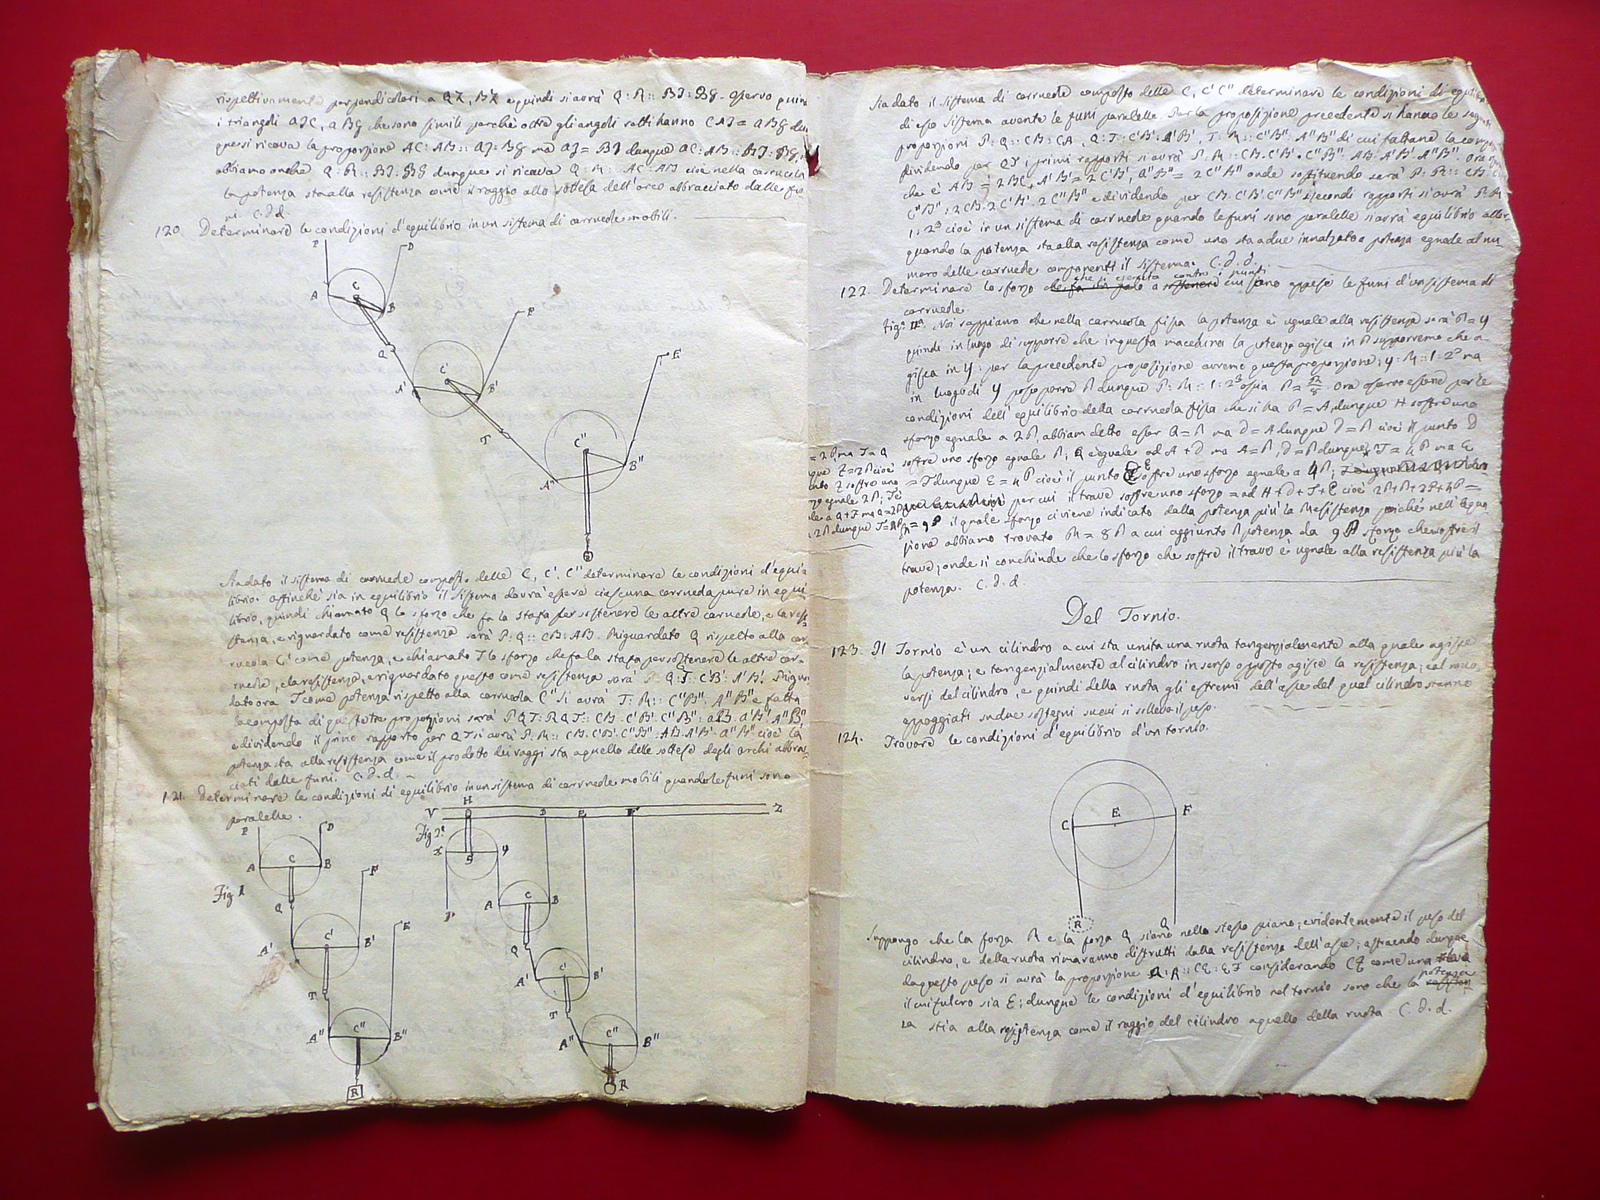 rispettivamente perpendicolari a QZ, BZ e quindi si avrà Q:R:: BI:Bg. Osservo quin
i triangoli AIC, ABg che sono simili perchè oltre gli angoli retti hanno CAI = ABg dun
quesi ricava la proporzione AC:AB:: AI:Bg ma AI = BI dunque AC:AB:: BI:Bg, ma
abbiamo anche Q:R:: BI:Bg dunque si ricava Q:R:: AC:AB cioè nella carrucola
la potenza sta alla resistenza come il raggio alla sottesa dell'arco abbracciato dalle fu
ni C.d.d.
120. Determinare le condizioni d'equilibrio in un sistema di carrucole mobili.
P D
A C B
Q P
A' C' B' E
T
C''
A'' B''
Sia dato il sistema di carrucole composto delle C, C', C'' determinare le condizioni d'equi
librio. Affinchè sia in equilibrio il sistema dovrà essere ciascuna carrucola pure in equi
librio, quindi chiamato Q lo sforzo che fa la staffa per sostenere le altre carrucole, e la resi
stenza, e riguardato come resistenza sarà P:Q:: CB:AB. Riguardato Q rispetto alla car
rucola C' come potenza, e chiamato T lo sforzo che fa la staffa per sostenere le altre car
rucole, e la resistenza, e riguardato questo come resistenza sarà Q:T:: C'B':A'B'. Riguar
dato ora T come potenza rispetto alla carrucola C'' si avrà T:R:: C''B'':A''B'' e fatta
la composta di queste tre proporzioni sarà PQT:RQT:: CB.C'B'.C''B'':AB.A'B'.A''B''
e dividendo il primo rapporto per QT si avrà P:R:: CB.C'B'.C''B'':AB.A'B'.A''B'' cioè la
potenza sta alla resistenza come il prodotto dei raggi sta a quello delle sottese degli archi abbrac
ciati dalle funi. C.d.d.
121. Determinare le condizioni di equilibrio in un sistema di carrucole mobili quando le funi sono
parallele.
P D
A C B
Fig 1
Q P
A' C' B' E
T
A'' C'' B''
R
V H D E Z
Fig 2ª
X S Y
P A C B
Q
A' C' B'
T
A'' C'' B''
R
Sia dato il sistema di carrucole composto delle C, C' C'' determinare le condizioni di equilib
di esso sistema avente le funi parallele. Per la proposizione precedente si hanno le segu
proporzioni P:Q:: CB:CA, Q:T:: C'B':A'B', T:R:: C''B'':A''B'' di cui fattane la compos
dividendo per QT i primi rapporti si avrà P:R:: CB.C'B'.C''B'':AB.A'B'.A''B''. Ora
che è AB = 2BC, A'B' = 2C'B', A''B'' = 2C''B'' onde sostituendo sarà P:R:: CB.C'B'
C''B'': 2CB.2C'B'.2C''B'' e dividendo per CB.C'B'.C''B'' i secondi rapporti si avrà P:R::
1:2³ cioè in un sistema di carrucole quando le funi sono parallele si avrà equilibrio allor
quando la potenza sta alla resistenza come uno sta a due innalzato a potenza eguale al nu
mero delle carrucole componenti il sistema. C.d.d.
122. Determinare lo sforzo che si esercita contro i punti a cui sono appese le funi d'un sistema di
carrucole.
Noi sappiamo che nella carrucola fissa la potenza è uguale alla resistenza sarà P = Y
quindi in luogo di supporre che in questa macchina la potenza agisca in P supporremo che a
gisca in Y: per la precedente proposizione avremo questa proporzione; Y:R:: 1:2³ ma
in luogo di Y posso porre P dunque P:R:: 1:2³ ossia P = R/8. Ora osservo essendo per le
condizioni dell'equilibrio della carrucola fissa che si ha P = A dunque H soffre uno
sforzo eguale a 2P, abbiam detto esser A = P ma D = A dunque D = P cioè il punto D
soffre uno sforzo eguale P; Q è eguale ad A + D ma A = P, D = P dunque
= T dunque E = 4P cioè il punto E soffre uno sforzo eguale a 4P;
per cui il trave soffre uno sforzo = ad H+D+I+E cioè 2P+P+2P+4P =
= 9P il quale sforzo ci viene indicato dalla potenza più la Resistenza poichè nell'equa
zione abbiamo trovato R = 8P a cui aggiunto P potenza da 9P sforzo che soffre il
trave; onde si conchiude che lo sforzo che soffre il trave è uguale alla resistenza più la
potenza. C.d.d.
Del Tornio.
123. Il Tornio è un cilindro a cui sta unita una ruota tangenzialmente alla quale agisce
la potenza; e tangenzialmente al cilindro in senso opposto agisce la resistenza; e al muo
versi del cilindro, e quindi della ruota gli estremi dell'asse del qual cilindro stanno
appoggiati su due sostegni su cui si solleva il peso.
124. Trovare le condizioni d'equilibrio d'un tornio.
C E F
R Q
Suppongo che la forza R e la forza Q siano nello stesso piano; evidentemente il peso del
cilindro, e della ruota rimaranno distrutti dalla resistenza dell'asse; astraendo dunque
da questo peso si avrà la proporzione Q:R:: CE:EF considerando CF come una leva
il cui fulcro sia E; dunque le condizioni d'equilibrio nel tornio sono che la potenza
stia alla resistenza come il raggio del cilindro a quello della ruota C.d.d.